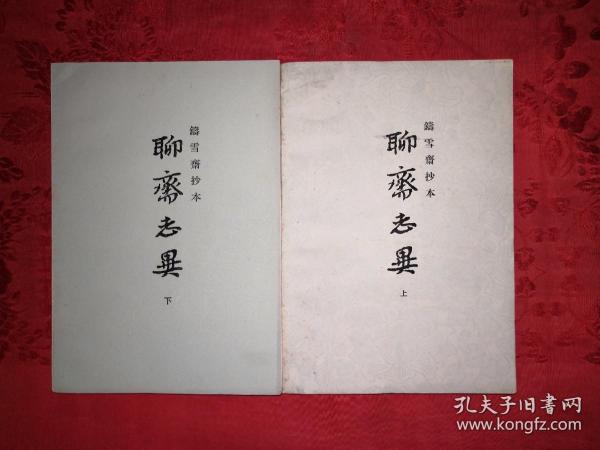 鑄雪齋抄本
聊齋志異
下
鑄雪齋抄本
聊齋志異
上
孔夫子旧書网
www.kongfz.com